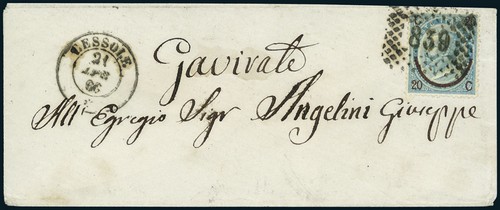 LESSOLO
21
APR
66
859
20 C
Gavirate
All' Egregio Sigr Angelini Giuseppe